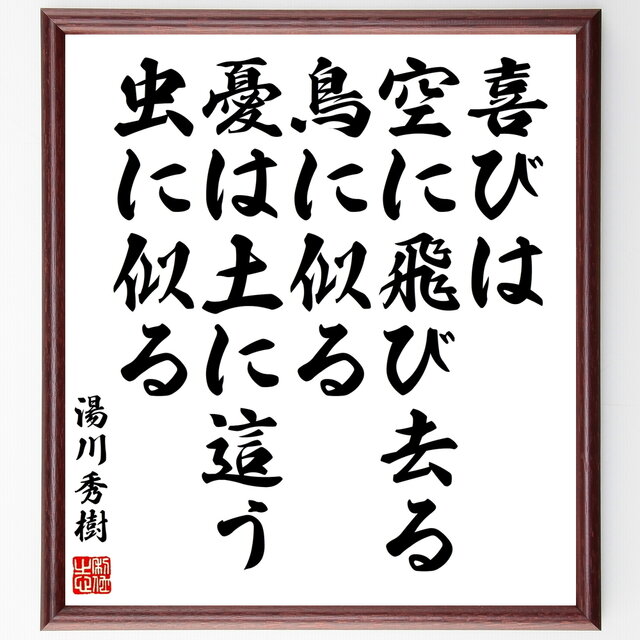 喜びは
空に飛び去る
鳥に似る
憂は土に這う
虫に似る
湯川秀樹